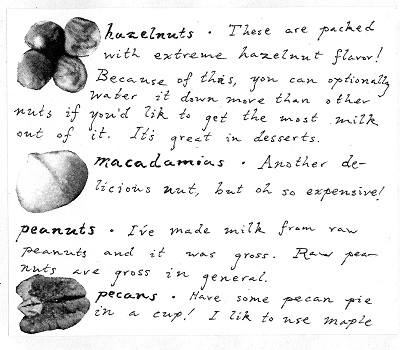 hazelnuts · These are packed
with extreme hazelnut flavor!
Because of this, you can optionally
water it down more than other
nuts if you'd lik to get the most milk
out of it. It's great in desserts.
macadamias · Another de-
licious nut, but oh so expensive!
peanuts · I've made milk from raw
peanuts and it was gross. Raw pea-
nuts are gross in general.
pecans · Have some pecan pie
in a cup! I like to use maple